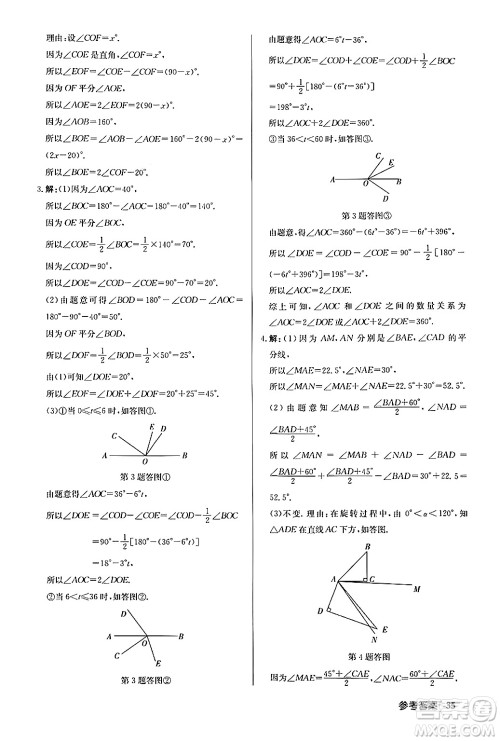 理由:设∠COF=x°.
因为∠COE是直角,
所以∠EOF=∠COE-∠COF=(90-x)°.
因为OF平分∠AOE,
所以∠AOE=2∠EOF=2(90-x)°.
因为∠AOB=160°,
所以∠BOE=∠AOB-∠AOE=160°-2(90-x)°=
(2x-20)°.
故∠BOE=2∠COF-20°.
3.解:(1)因为∠AOC=40°,
所以∠BOC=180°-∠AOC=140°.
因为OE平分∠BOC,
所以∠COE=1/2∠BOC=1/2×140°=70°.
因为∠COD=90°,
所以∠DOE=∠COD-∠COE=90°-70°=20°.
(2)由题意可得∠BOD=180°-∠AOC-∠COD=
180°-90°-40°=50°.
所以∠DOF=1/2∠BOD=1/2×50°=25°.
由(1)知∠DOE=20°,
所以∠EOF=∠DOE+∠DOF=20°+25°=45°.
(3)①当0≤t≤6时,如答图①.
C
D
E
A
O
B
第3题答图①
由题意得∠AOC=36°-6°t,
所以∠DOE=∠COD-∠COE=∠COD-1/2∠BOC
=90°-1/2[180°-(36°-6°t)]
=18°-3°t.
所以∠AOC=2∠DOE.
②当6<t≤36时,如答图②.
D
A
O
B
C
E
第3题答图②
由题意得∠AOC=6°t-36°,
所以∠DOE=∠COD+∠COE=∠COD+1/2∠BOC
=90°+1/2[180°-(6°t-36°)]=198°-3°t.
所以∠AOC+2∠DOE=360°.
③当36<t<60时,如答图③.
C
E
A
O
B
D
第3题答图③
由题意,得∠AOC=360°-(6°t-36°)=396°-6°t,
所以∠DOE=∠COD-∠COE=90°-1/2[180°-
(396°-6°t)]=198°-3°t.
所以∠AOC=2∠DOE.
综上可知,∠AOC和∠DOE之间的数量关系为
∠AOC=2∠DOE或∠AOC+2∠DOE=360°.
4.解:(1)因为AM,AN分别是∠BAE,∠CAD的平
分线,
所以∠MAE=22.5°,∠NAE=30°.
所以∠MAN=∠MAE+∠NAE=22.5°+30°=
52.5°.
(2)由题意知∠MAB=(∠BAD+60°)/2,∠NAD=
(∠BAD+45°)/2,
所以∠MAN=(∠BAD+60°)/2+(∠BAD+45°)/2-∠BAD=30°+22.5=
52.5°.
(3)不变.理由:在旋转过程中,0°<α<120°,设
△ADE在直线AC下方,如答图.
B
A
C
M
D
E
N
第4题答图
因为∠MAE=(45°+∠CAE)/2,∠NAC=(60°+∠CAE)/2,
参考答案 35